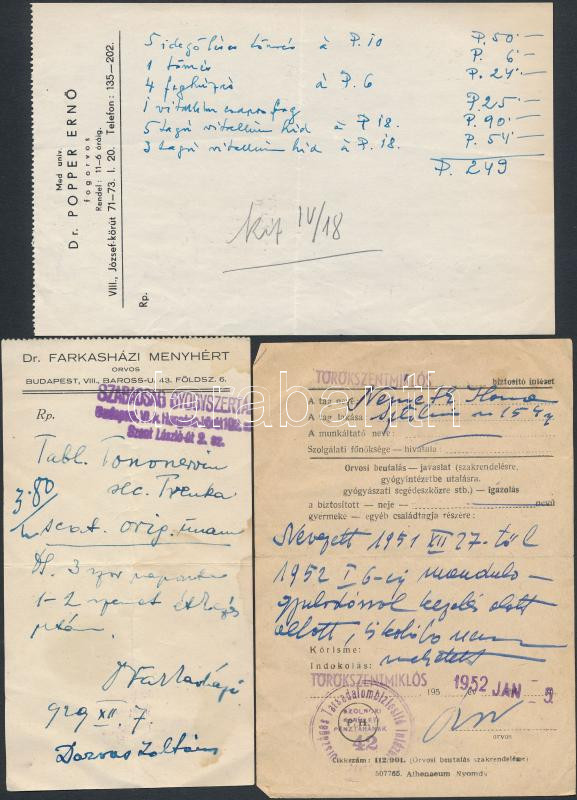 Dr. POPPER ERNŐ
Med univ.
fogorvos
Rendel: 11-6 óráig.
VIII., József-körút 71-73. I. 20. Telefon: 135-202.
Rp.
5 idegöléses tömés à P. 10 P. 50.—
1 tömés P. 6.—
4 foghúzás à P. 6 P. 24.—
1 vitallium csaposfog P. 25.—
5 tagú vitallium híd à P 18. P. 90.—
3 tagú vitallium híd à P. 18. P. 54.—
P. 249
IV/18
Dr. FARKASHÁZI MENYHÉRT
ORVOS
BUDAPEST, VIII., BAROSS-U. 43. FÖLDSZ. 6.
Szent László-út 2. sz.
Rp.
Tabl. Tononervin
sec. Trenka
3.80
scat. orig. unam
3 szor naponta
1-2 szemet étkezés
után.
929 XII. 7.
Darvas Zoltán
TÖRÖKSZENTMIKLÓS biztosító intézet
A tag neve: Németh Ilona
A tag lakása:
A munkáltató neve:
Szolgálati főnöksége — hivatala:
Orvosi beutalás — javaslat (szakrendelésre,
gyógyintézetbe utalásra,
gyógyászati segédeszközre stb.) — igazolás
a biztosított — neje — nevű
gyermeke — egyéb családtagja részére:
Nevezett 1951 XII 27.-től
1952 I 6-ig mandula-
gyulladással kezelés alatt
állott, iskolába nem
Kórisme: mehetett
Indokolás:
TÖRÖKSZENTMIKLÓS 195 1952 JAN 5
Országos Társadalombiztosító Intézet
SZOLNOKI
KERÜLET
PÉNZTÁRÁNAK
P. H.
42
orvos
Cikkszám: 112.201. (Orvosi beutalás szakrendelésre)
507765. Athenaeum Nyomda
darabanth